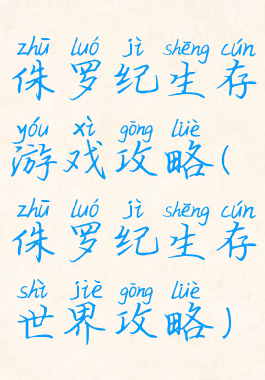 zhū luó jì shēng cún
侏罗纪生存
yóu xì gōng lüè
游戏攻略(
zhū luó jì shēng cún
侏罗纪生存
shì jiè gōng lüè
世界攻略)